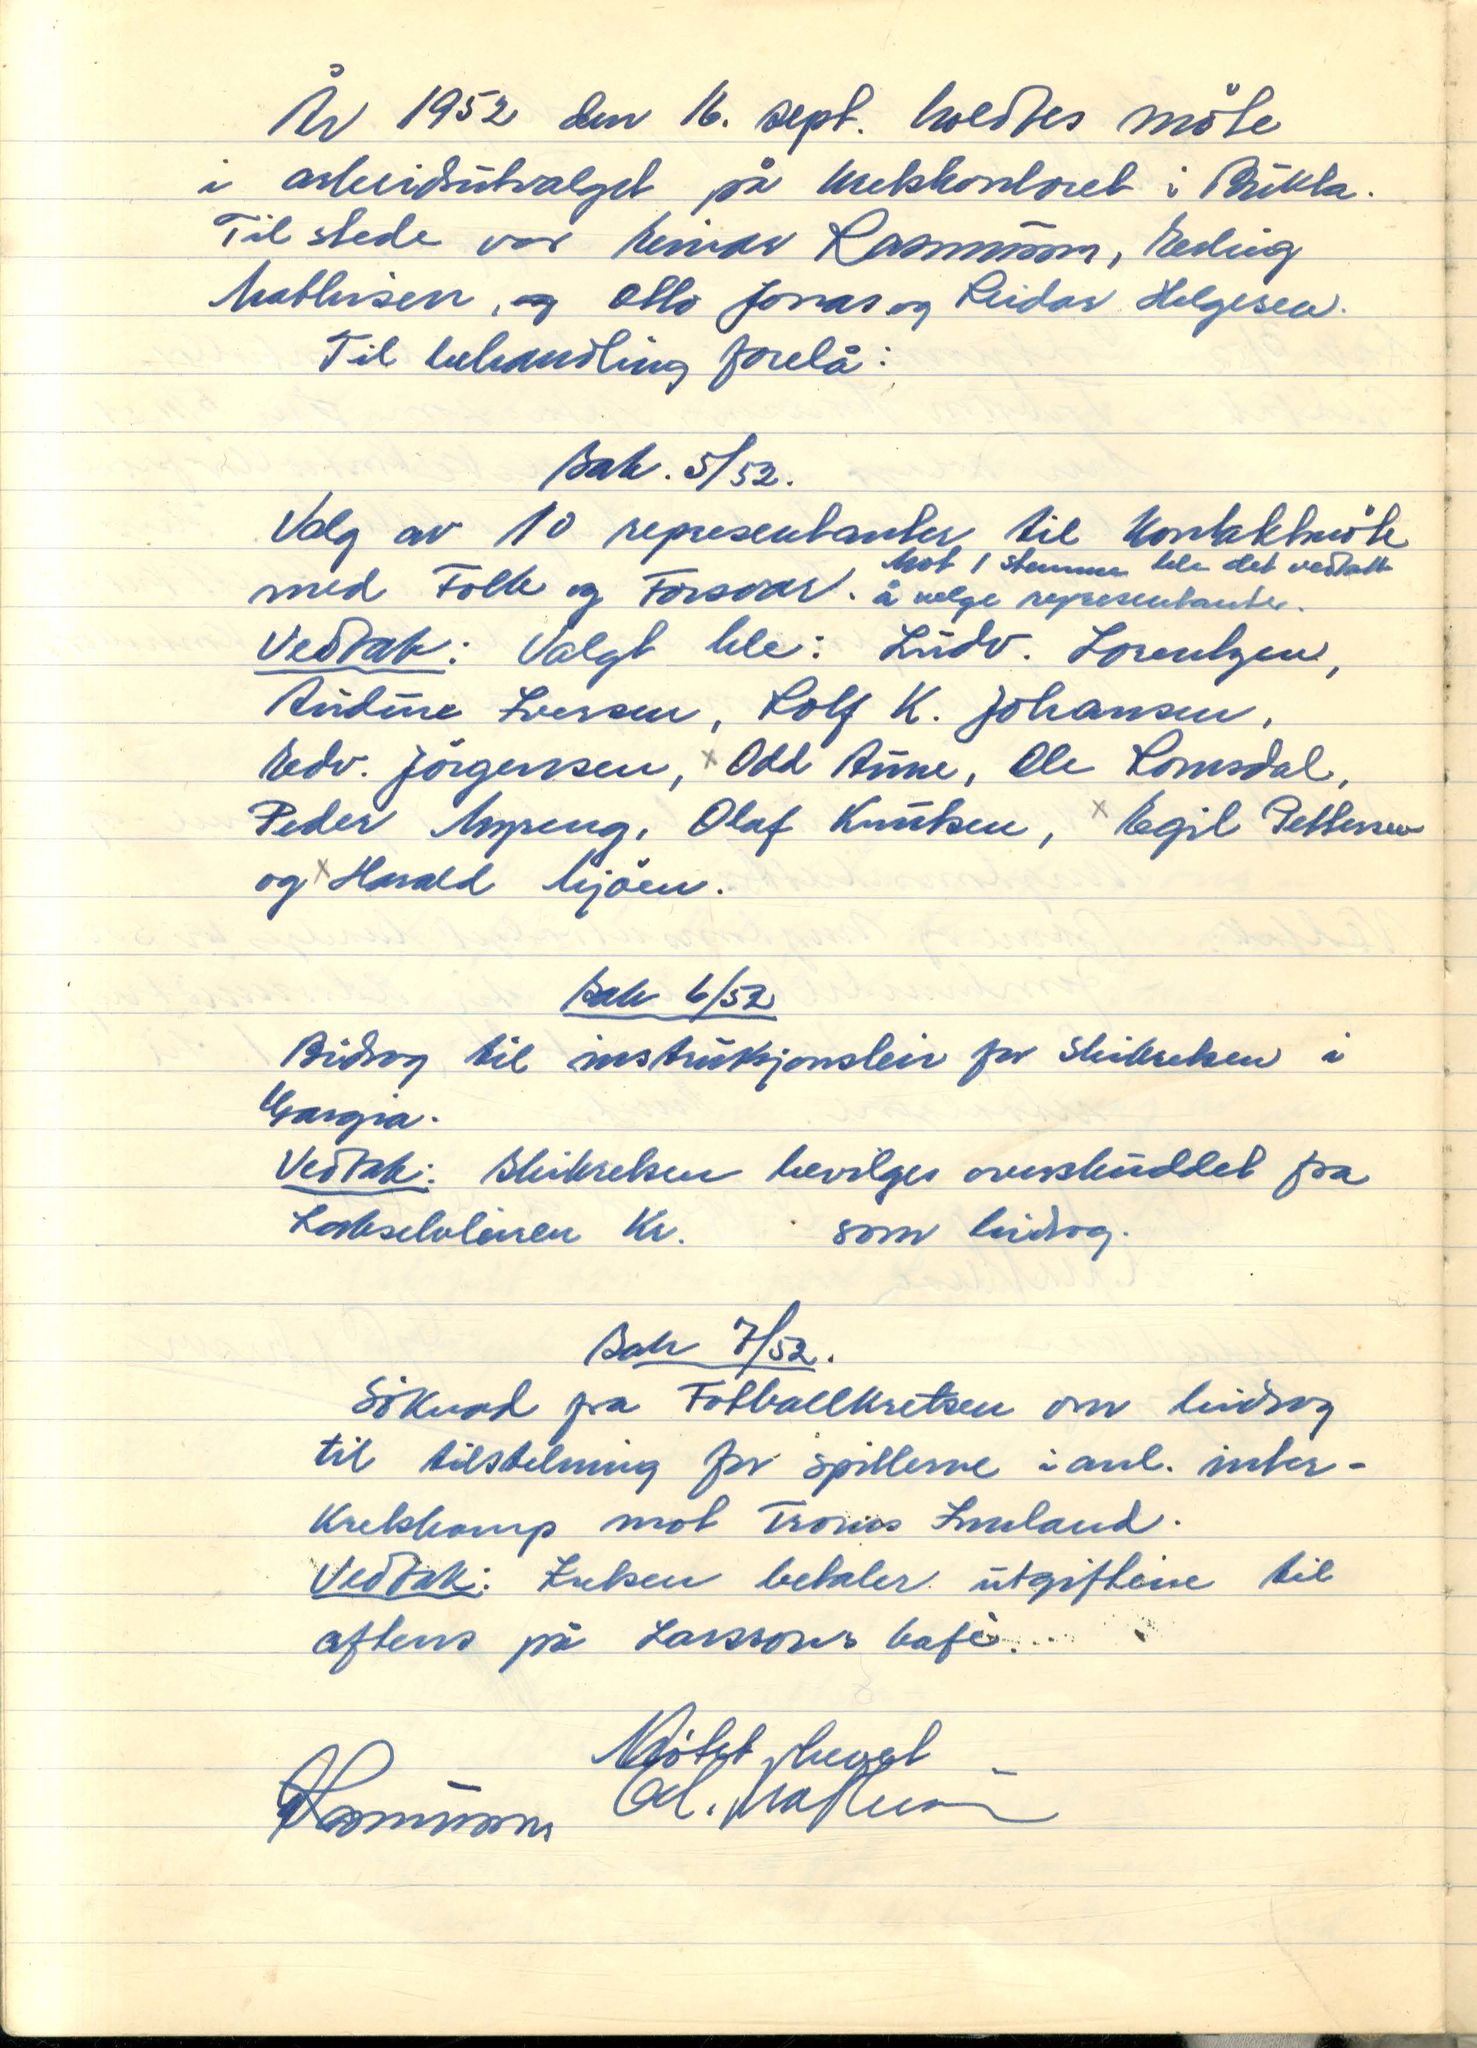 År 1952 den 16. sept. holdtes möte
i arbeidsutvalget på kretskontoret i Bukta.
Til stede var Reidar Rasmussen, Erling
Mathisen, og Otto Jonas og Reidar Helgesen.
Til behandling forelå:
Sak. 5/52.
Valg av 10 representanter til kontaktmöte
med Folk og Forsvar. Mot 1 stemme ble det vedtatt
å velge representanter.
Vedtak: Valgt ble: Ludv. Lorentzen,
Audun Iversen, Rolf K. Johansen,
Edv. Jörgensen, x Odd Aune, Ole Romsdal,
Peder Myreng, Olaf Knutsen, x Egil Pettersen
og x Harald Mjöen.
Sak 6/52
Bidrag til instruksjonsleir for Skikretsen i
Gargia.
Vedtak: Skikretsen bevilges overskuddet fra
Kr. som bidrag.
Sak 7/52.
Söknad fra Fotballkretsen om bidrag
til tilstelning for spillerne i anl. inter-
kretskamp mot Troms Innland.
Vedtak: Kretsen betaler utgiftene til
aftens på Larssons kafé.
Mötet hevet